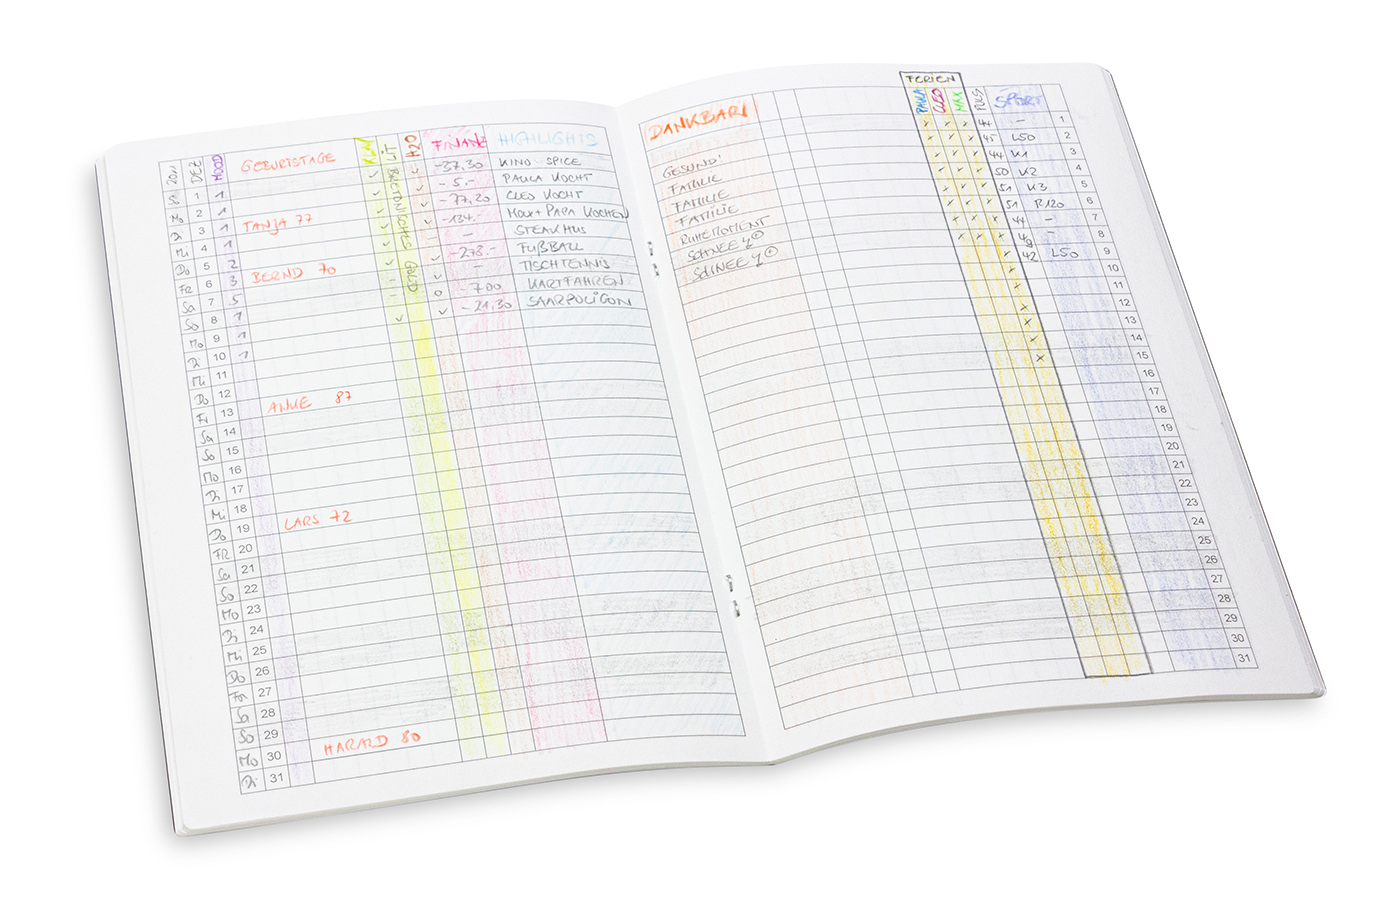 DEZ MOOD GEBURTSTAGE H2O FINANZ HIGHLIGHTS
BRETONISCHES GOLD
So 1 1 -37,30 KINO - SPICE
Mo 2 1 -5.- PAULA KOCHT
Di 3 1 TANJA 77 -77,20 CLEO KOCHT
Mi 4 1 -134.- MAX + PAPA KOCHEN
Do 5 2 - STEAKHUS
Fr 6 3 BERND 70 -278.- FUßBALL
Sa 7 5 - TISCHTENNIS
So 8 1 -700 KARTFAHREN
Mo 9 1 -21,30 SAARPOLIGON
Di 10 1
Mi 11
Do 12
Fr 13 ANKE 87
Sa 14
So 15
Mo 16
Di 17
Mi 18
Do 19 LARS 72
FR 20
Sa 21
So 22
Mo 23
Di 24
Mi 25
Do 26
Fr 27
Sa 28
So 29
Mo 30 HARARD 80
Di 31
FERIEN
DANKBAR! PAULA CLEO MAX PULS SPORT
44 - 1
45 L50 2
GESUND! 44 K1 3
FAMILIE 50 K2 4
FAMILIE 51 K3 5
FAMILIE 51 R120 6
RUHEMOMENT 44 - 7
SCHNEE 49 - 8
SCHNEE 42 L50 9
11
12
13
14
15
16
17
18
19
20
21
22
23
24
25
26
27
28
29
30
31